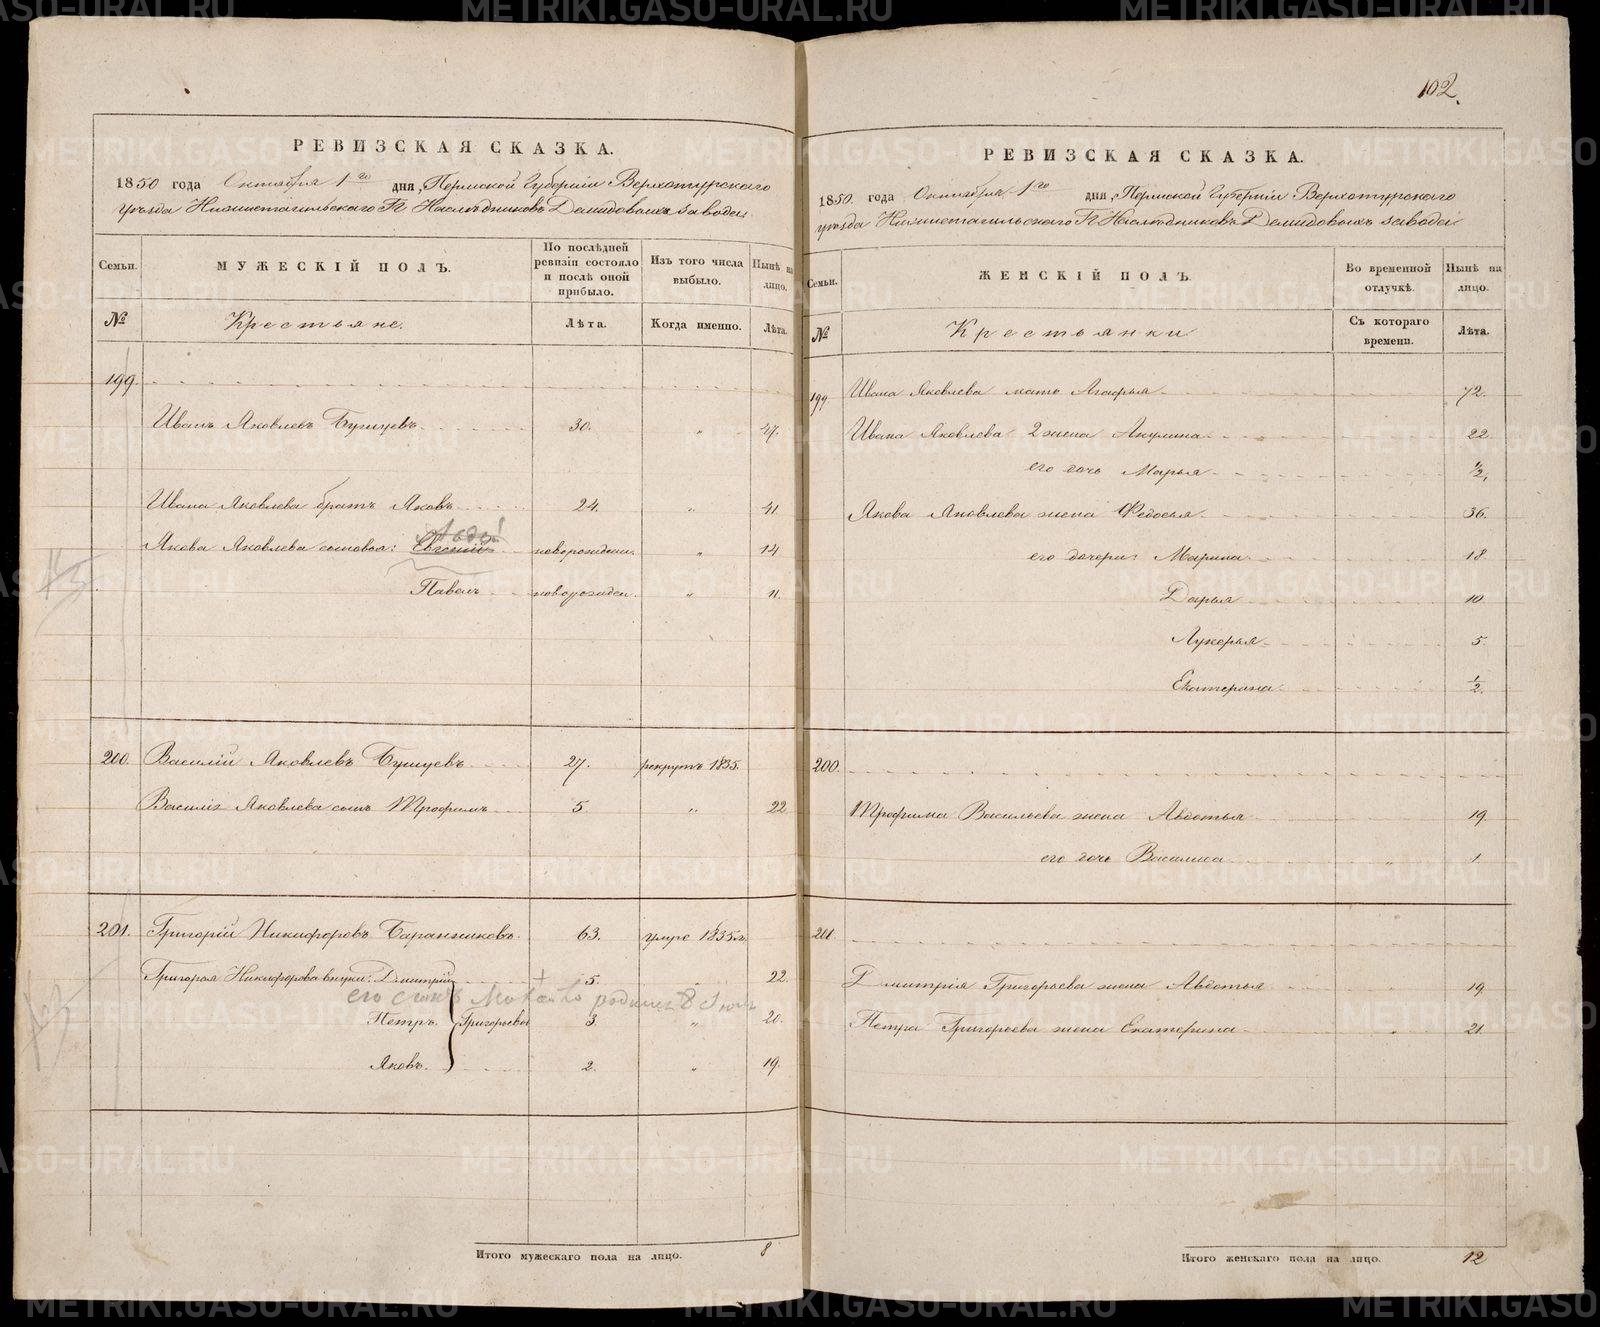 102.
РЕВИЗСКАЯ СКАЗКА.
1850 года Октября 1го дня, Пермской Губерніи Верхотурскаго
уѣзда Нижнетагильскаго Гг Наслѣдниковъ Демидовыхъ завода
Семьи.
МУЖЕСКІЙ ПОЛЪ.
По послѣдней ревизіи состояло и послѣ оной прибыло.
Изъ того числа выбыло.
Нынѣ на лицо.
№
Крестьяне.
Лѣта.
Когда именно.
Лѣта.
199.
Иванъ Яковлевъ Бушуевъ 30. " 47.
Ивана Яковлева братъ Яковъ 24. " 41
Якова Яковлева сыновья: Евгеній новорожден. " 14
Павелъ новорожден. " 11.
200. Василій Яковлевъ Бушуевъ 27. рекрутъ 1835.
Василія Яковлева сынъ Трофимъ 5 " 22
201. Григорій Никифоровъ Баранниковъ 63. умре 1835г.
Григорья Никифорова внуки: Дмитрій 5. 22.
его сынъ родился 8
Петръ Григорьевы 3. " 20.
Яковъ. 2. " 19.
Итого мужескаго пола на лицо. 8
РЕВИЗСКАЯ СКАЗКА.
1850. года Октября 1го дня, Пермской Губерніи Верхотурскаго
уѣзда Нижнетагильскаго Гг Наслѣдниковъ Демидовыхъ завода
Семьи.
ЖЕНСКІЙ ПОЛЪ
Во временной отлучкѣ.
Нынѣ на лицо.
№
Крестьянки
Съ котораго времени.
Лѣта.
199 Ивана Яковлева мать Агафья 72.
Ивана Яковлева 2 жена Акулина 22
его дочь Марья 1/2,
Якова Яковлева жена Федосья 36.
его дочери: Марина 18.
Дарья 10
Лукерья 5.
Екатерина 1/2.
200.
Трофима Васильева жена Авдотья 19.
его дочь Василиса " 1
201.
Дмитрія Григорьева жена Авдотья 19
Петра Григорьева жена Екатерина 21.
Итого женскаго пола на лицо. 12
METRIKI.GASO-URAL.RU